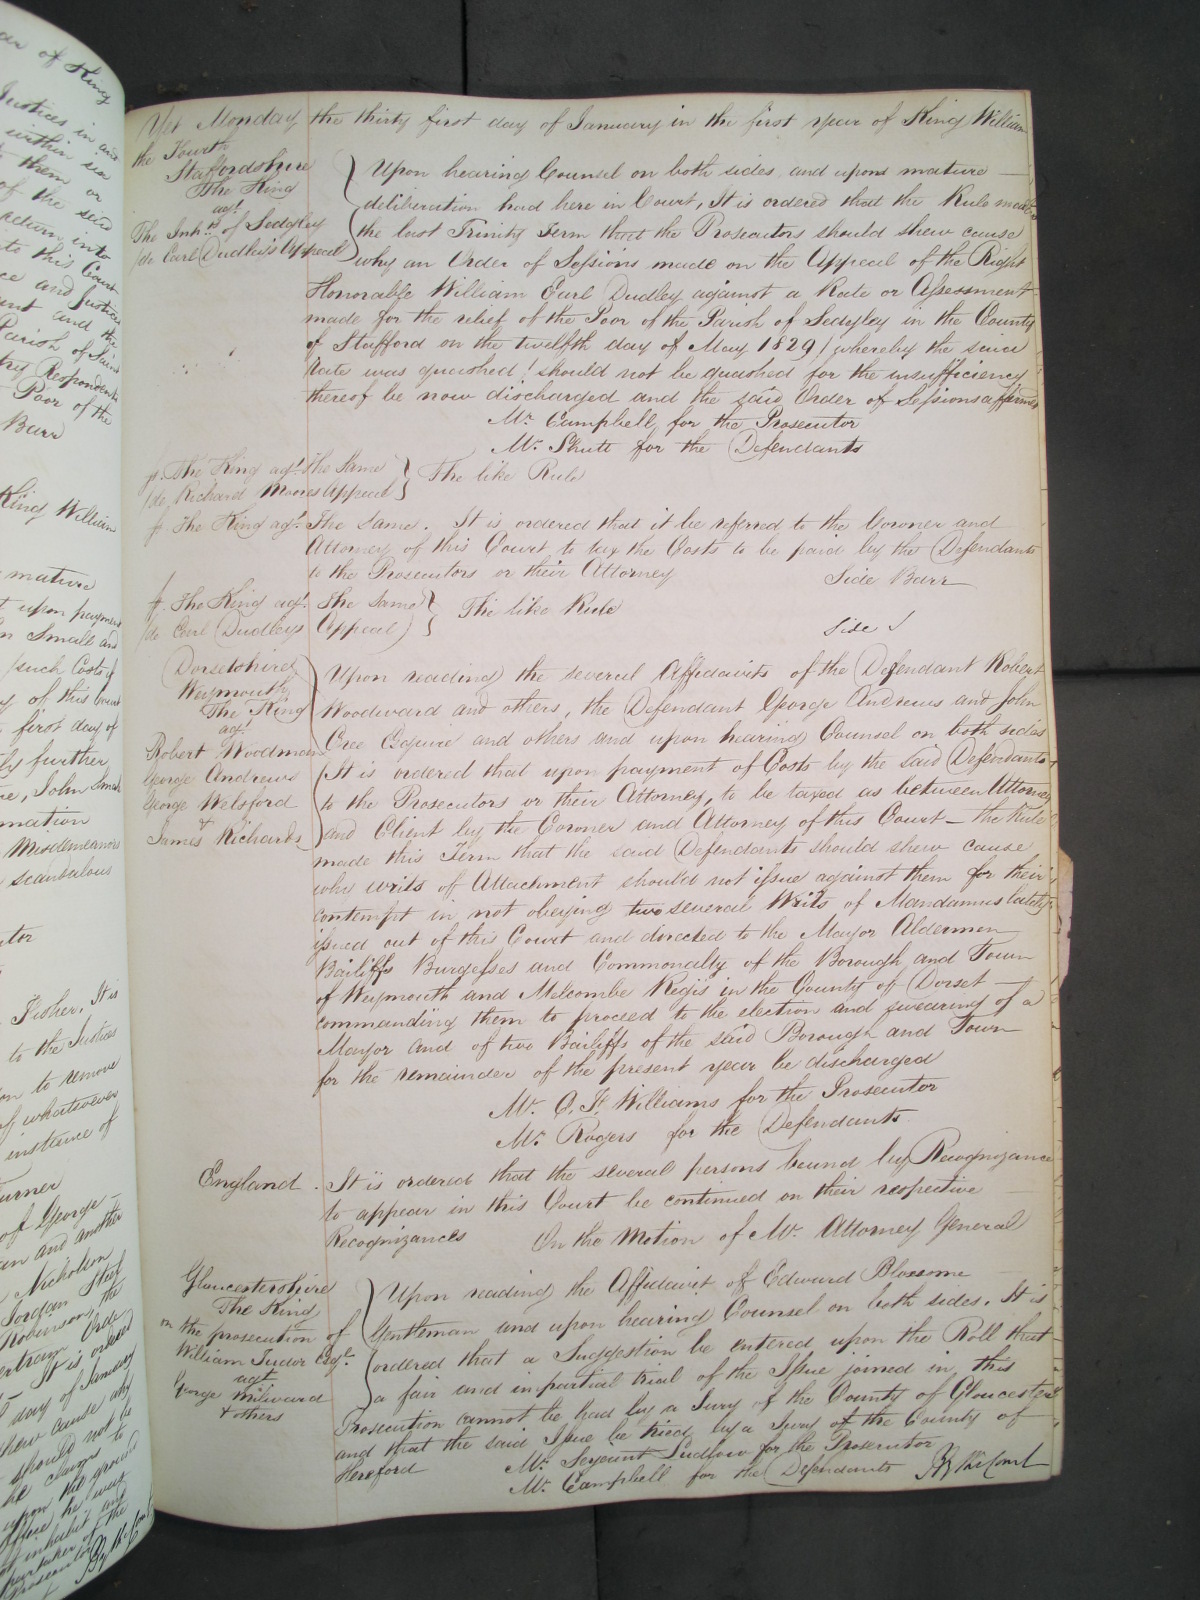 Yet Monday the thirty first day of January in the first year of King William
the Fourth
Staffordshire
The King
agt.
The Inhts. of Sedgley
(de Earl Dudley's Appeal
Upon hearing Counsel on both sides and upon mature
deliberation had here in Court, It is ordered that the Rule made
the last Trinity Term that the Prosecutors should shew cause
why an Order of Sessions made on the Appeal of the Right
Honorable William Earl Dudley against a Rate or Assessment
made for the relief of the Poor of the Parish of Sedgley in the County
of Stafford on the twelfth day of May 1829 (whereby the said
Rate was quashed) should not be quashed for the insufficiency
thereof be now discharged and the said Order of Sessions affirmed
Mr. Campbell for the Prosecutor
Mr. Shutt for the Defendants
The King agt. The Same
(de Richard Moores Appeal
The like Rule
The King agt. The Same. It is ordered that it be referred to the Coroner and
Attorney of this Court to tax the Costs to be paid by the Defendants
to the Prosecutors or their Attorney
Side Barr
The King agt. The Same
(de Earl Dudleys Appeal)
The like Rule
Side
Dorsetshire
Weymouth
The King
agt
Robert Woodman
George Andrews
George Welsford
&
James Richards
Upon reading the several Affidavits of the Defendant Robert
Woodward and others, the Defendant George Andrews and John
Cree Esquire and others and upon hearing Counsel on both sides
It is ordered that upon payment of Costs by the said Defendants
to the Prosecutors or their Attorney, to be taxed as between Attorney
and Client by the Coroner and Attorney of this Court - the Rule
made this Term that the said Defendants should shew cause
why writs of Attachment should not issue against them for their
contempt in not obeying two several Writs of Mandamus lately
issued out of this Court and directed to the Mayor Aldermen
Bailiffs Burgesses and Commonalty of the Borough and Town
of Weymouth and Melcombe Regis in the County of Dorset
commanding them to proceed to the election and swearing of a
Mayor and of two Bailiffs of the said Borough and Town
for the remainder of the present year be discharged
Mr. C. F. Williams for the Prosecutor
Mr. Rogers for the Defendants.
England. It is ordered that the several persons bound by Recognizance
to appear in this Court be continued on their respective
Recognizances On the Motion of Mr. Attorney General
Gloucestershire
The King
on the prosecution of
William Tudor Esqr.
agt
George Milward
& others
Upon reading the Affidavit of Edward Blossome
Gentleman and upon hearing Counsel on both sides. It is
ordered that a Suggestion be entered upon the Roll that
a fair and impartial trial of the Issue joined in this
Prosecution cannot be had by a Jury of the County of Gloucester
and that the said Issue be tried by a Jury of the County of
Hereford
Mr. Serjeant Ludlow for the Prosecutor
Mr. Campbell for the Defendants
By the Court